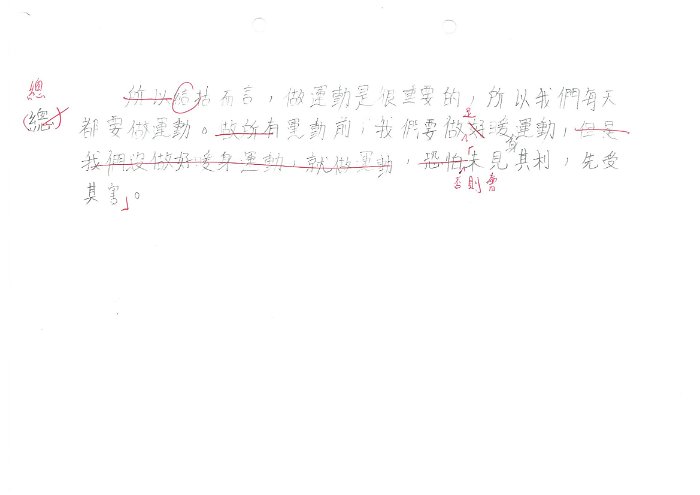 總
(總)
所以總括而言，做運動是很重要的，所以我們每天
都要做運動。故所有運動前，我們要做好暖身運動，但是
我們沒做好暖身運動，就做運動，恐怕「未見其利，先受
否則會
其害」。